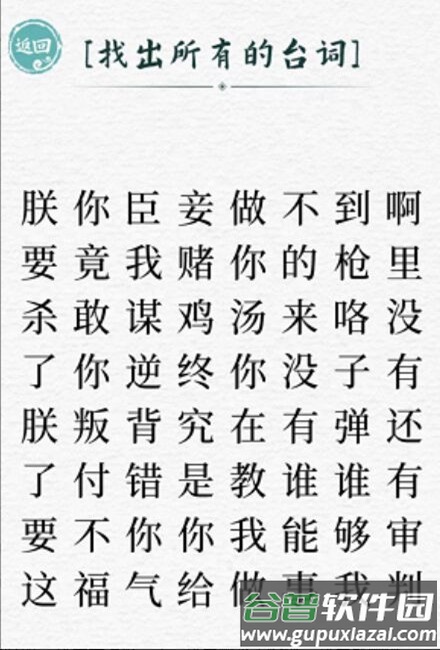 返回
[找出所有的台词]
朕你臣妾做不到啊
要竟我赌你的枪里
杀敢谋鸡汤来咯没
了你逆终你没子有
朕叛背究在有弹还
了付错是教谁谁有
要不你你我能够审
这福气给做事我判
谷普软件园
www.gupuxlazal.com